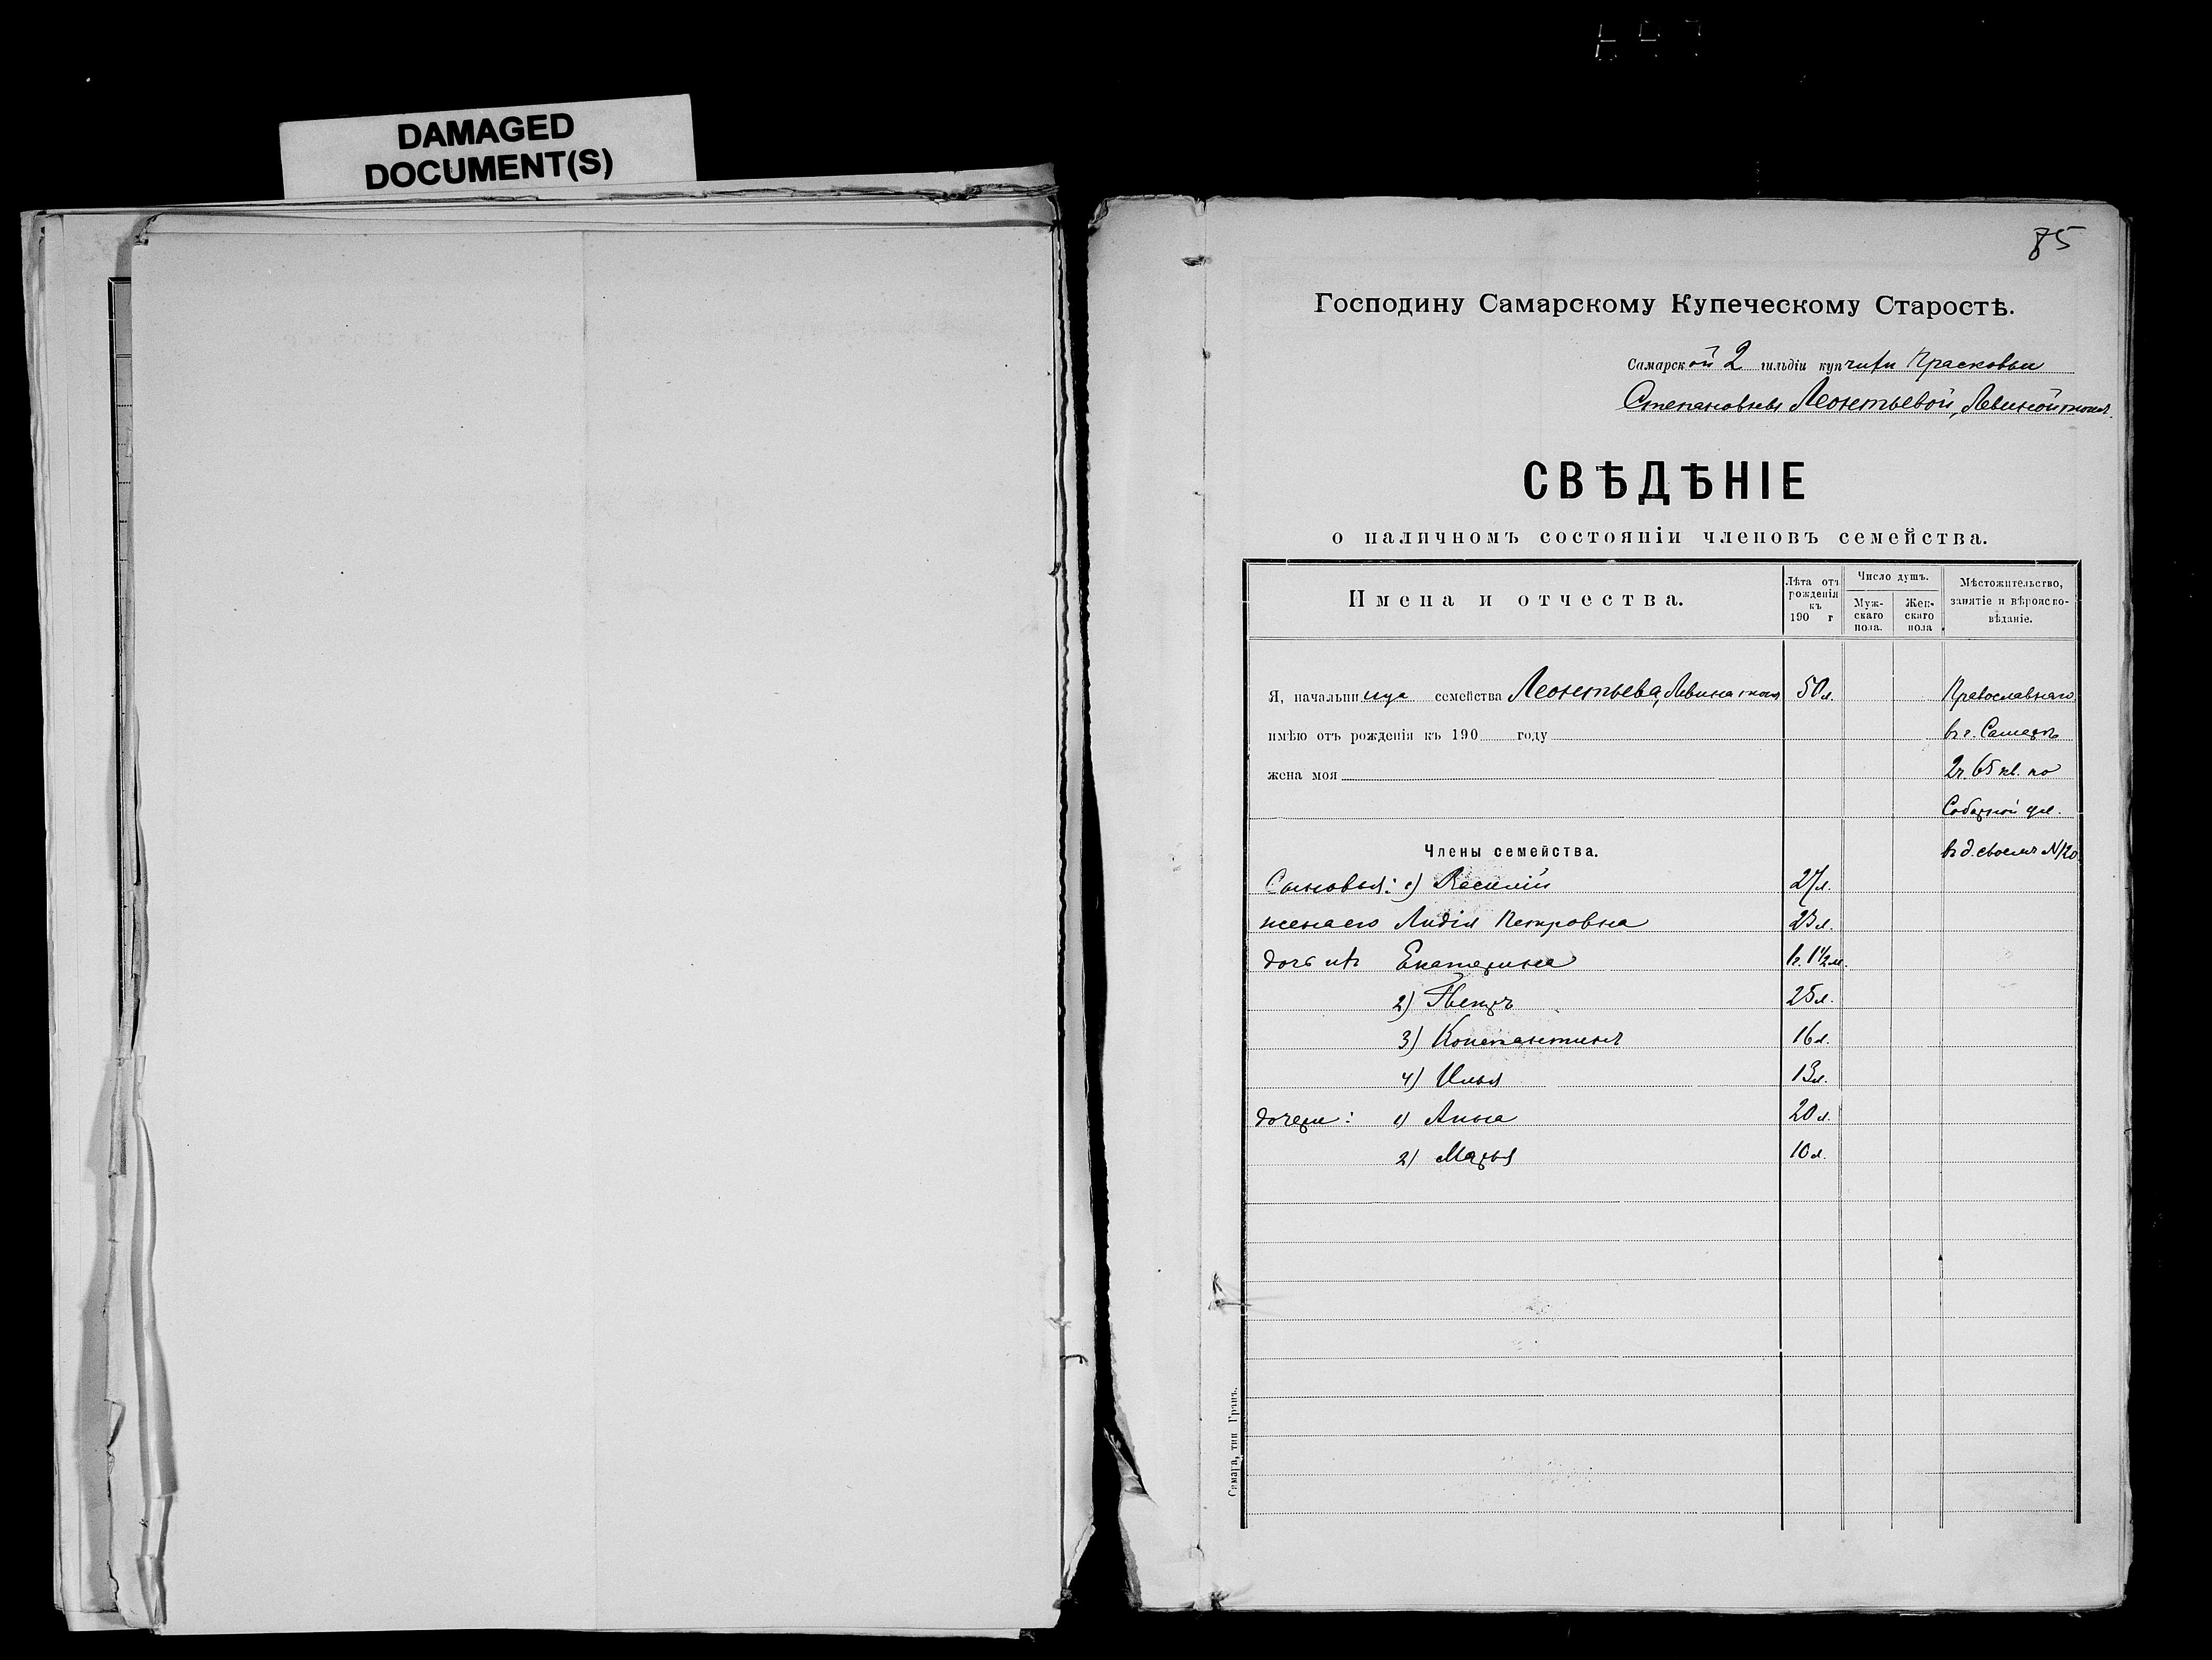 DAMAGED
DOCUMENT(S)
85
Господину Самарскому Купеческому Старостѣ.
Самарской 2 гильдіи купчихи Прасковьи
Степановны Леонтьевой, Левиной тожъ.
СВѢДѢНІЕ
о наличномъ состояніи членовъ семейства.
Имена и отчества.
Лѣта отъ рожденія къ 190 г
Число душъ.
Мужскаго пола.
Женскаго пола
Мѣстожительство, занятіе и вѣроисповѣданіе.
Я, начальница семейства Леонтьева, Левина тожъ 50 л. Православнаго
имѣю отъ рожденія къ 190 году въ г. Самарѣ
жена моя 2 ч. 65 кв. по
Соборной ул.
Члены семейства. въ д. своемъ № 120
Сыновья: 1) Василій 27 л.
жена его Лидія Петровна 23 л.
дочь ихъ Екатерина 1 1/2 м.
2) Петръ 25 л.
3) Константинъ 16 л.
4) Илья 13 л.
дочери: 1) Анна 20 л.
2) Марья 10 л.
Самара, тип Гранъ.